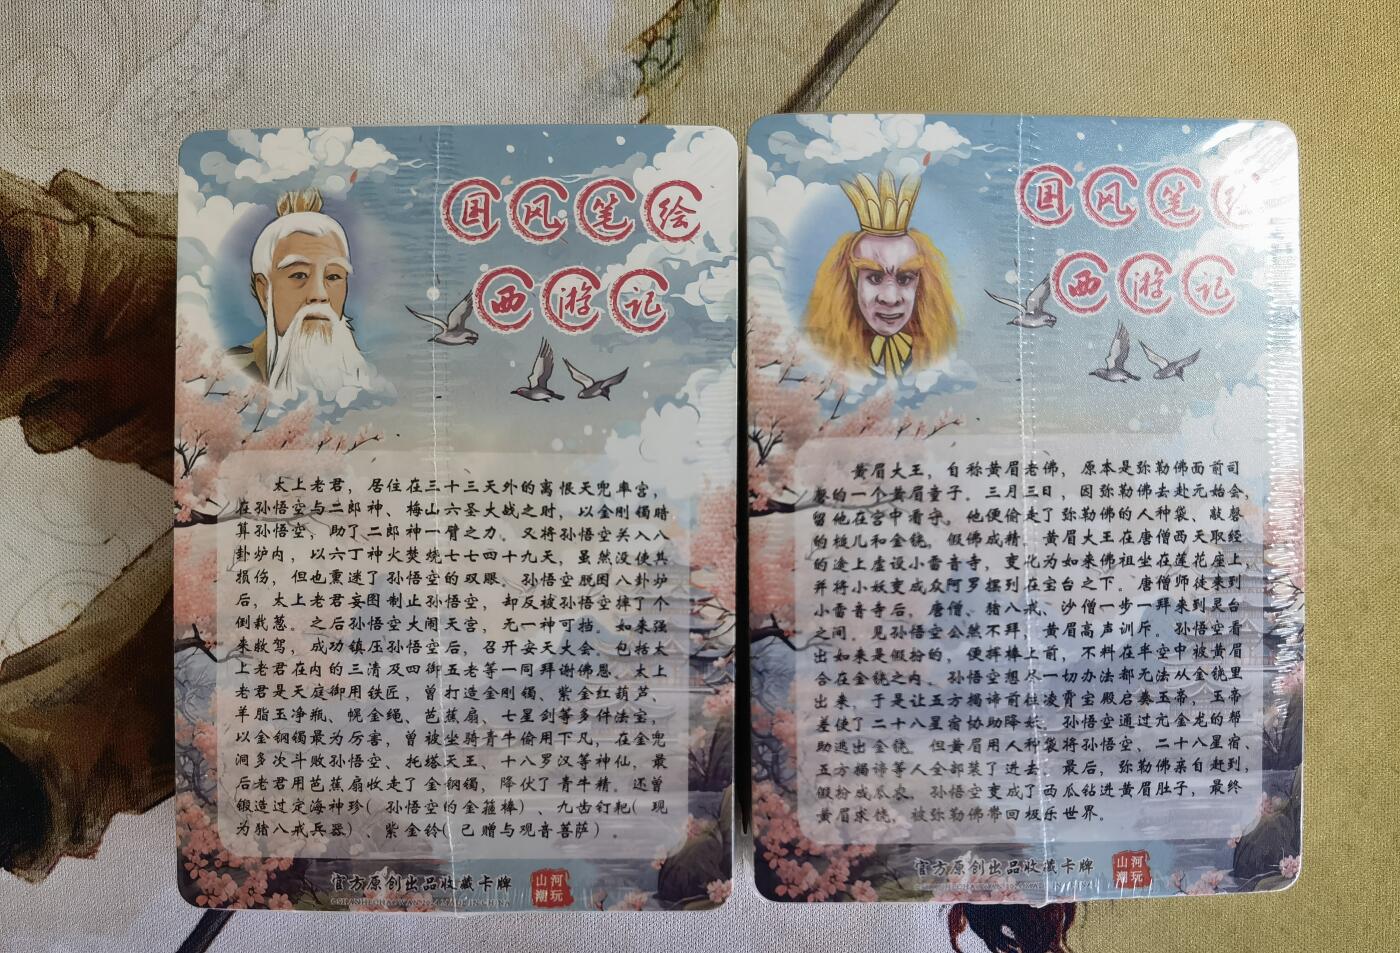 国风笔绘
西游记
太上老君，居住在三十三天外的离恨天兜率宫，
在孙悟空与二郎神、梅山六圣大战之时，以金刚镯暗
算孙悟空，助了二郎神一臂之力。又将孙悟空关入八
卦炉内，以六丁神火焚烧七七四十九天，虽然没使其
损伤，但也熏迷了孙悟空的双眼。孙悟空脱困八卦炉
后，太上老君妄图制止孙悟空，却反被孙悟空摔了个
倒栽葱。之后孙悟空大闹天宫，无一神可挡。如来强
来救驾，成功镇压孙悟空后，召开安天大会。包括太
上老君在内的三清及四御五老等一同拜谢佛恩。太上
老君是天庭御用铁匠，曾打造金刚镯、紫金红葫芦、
羊脂玉净瓶、幌金绳、芭蕉扇、七星剑等多件法宝，
以金钢镯最为厉害，曾被坐骑青牛偷用下凡，在金兜
洞多次斗败孙悟空、托塔天王、十八罗汉等神仙，最
后老君用芭蕉扇收走了金钢镯，降伏了青牛精。还曾
锻造过定海神珍(孙悟空的金箍棒)、九齿钉耙(现
为猪八戒兵器)、紫金铃(已赠与观音菩萨)。
官方原创出品收藏卡牌
山河
潮玩
国风笔绘
西游记
黄眉大王，自称黄眉老佛，原本是弥勒佛面前司
磬的一个黄眉童子。三月三日，因弥勒佛去赴元始会，
留他在宫中看守。他便偷走了弥勒佛的人种袋、敲磬
的槌儿和金铙，假佛成精。黄眉大王在唐僧西天取经
的途上虚设小雷音寺，变化为如来佛祖坐在莲花座上，
并将小妖变成众阿罗摆列在宝台之下。唐僧师徒来到
小雷音寺后，唐僧、猪八戒、沙僧一步一拜来到灵台
之间。见孙悟空公然不拜，黄眉高声训斥。孙悟空看
出如来是假扮的，便挥棒上前，不料在半空中被黄眉
合在金铙之内。孙悟空想尽一切办法都无法从金铙里
出来，于是让五方揭谛前往凌霄宝殿启奏玉帝，玉帝
差使了二十八星宿协助降妖。孙悟空通过亢金龙的帮
助逃出金铙。但黄眉用人种袋将孙悟空、二十八星宿、
五方揭谛等人全部装了进去。最后，弥勒佛亲自赶到，
假扮成瓜农。孙悟空变成了西瓜钻进黄眉肚子，最终
黄眉求饶，被弥勒佛带回极乐世界。
官方原创出品收藏卡牌
山河
潮玩